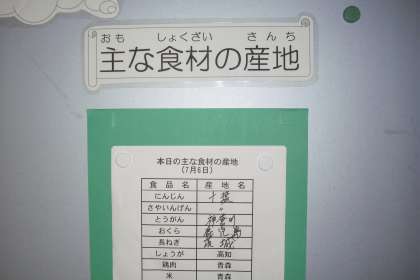 おも しょくざい さんち
主な食材の産地
本日の主な食材の産地
(7月6日)
食品名 産地名
にんじん 千葉
さやいんげん 〃
とうがん 神奈川
おくら 鹿児島
長ねぎ 茨城
しょうが 高知
鶏肉 青森
米 青森